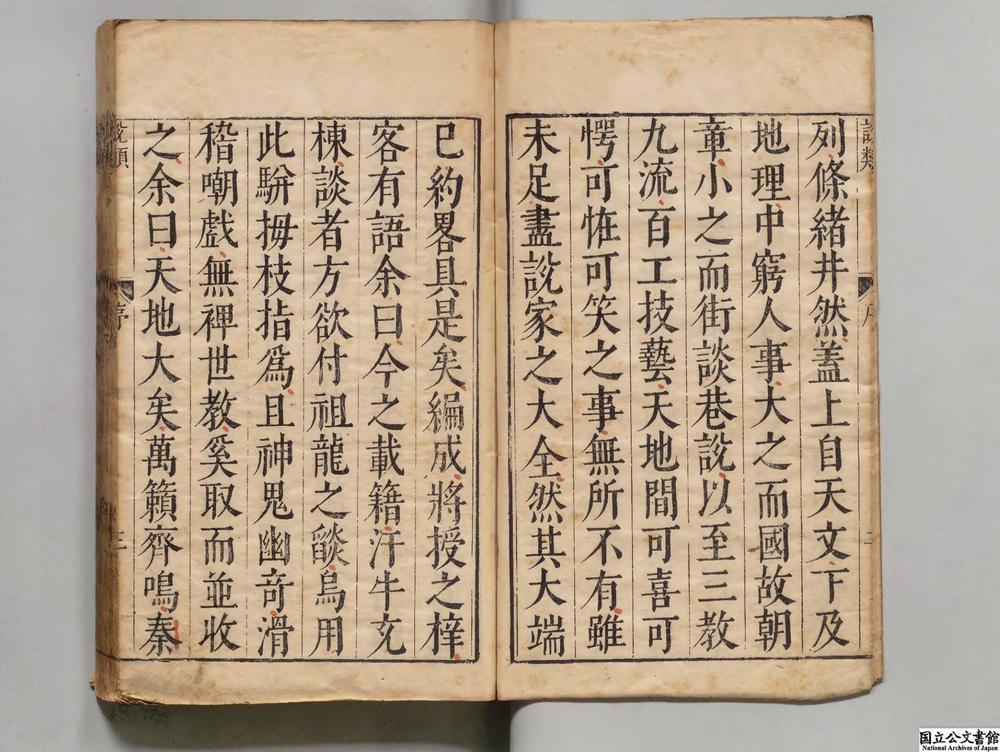 說類
序
列條緒井然蓋上自天文下及
地理中窮人事大之而國故朝
章小之而街談巷說以至三教
九流百工技藝天地間可喜可
愕可恠可笑之事無所不有雖
未足盡說家之大全然其大端
已約畧具是矣編成將授之梓
客有語余曰今之載籍汗牛充
棟談者方欲付祖龍之燄烏用
此駢拇枝指爲且神鬼幽奇滑
稽嘲戲無裨世教奚取而並收
之余曰天地大矣萬籟齊鳴秦
說類
序
三
国立公文書館
National Archives of Japan